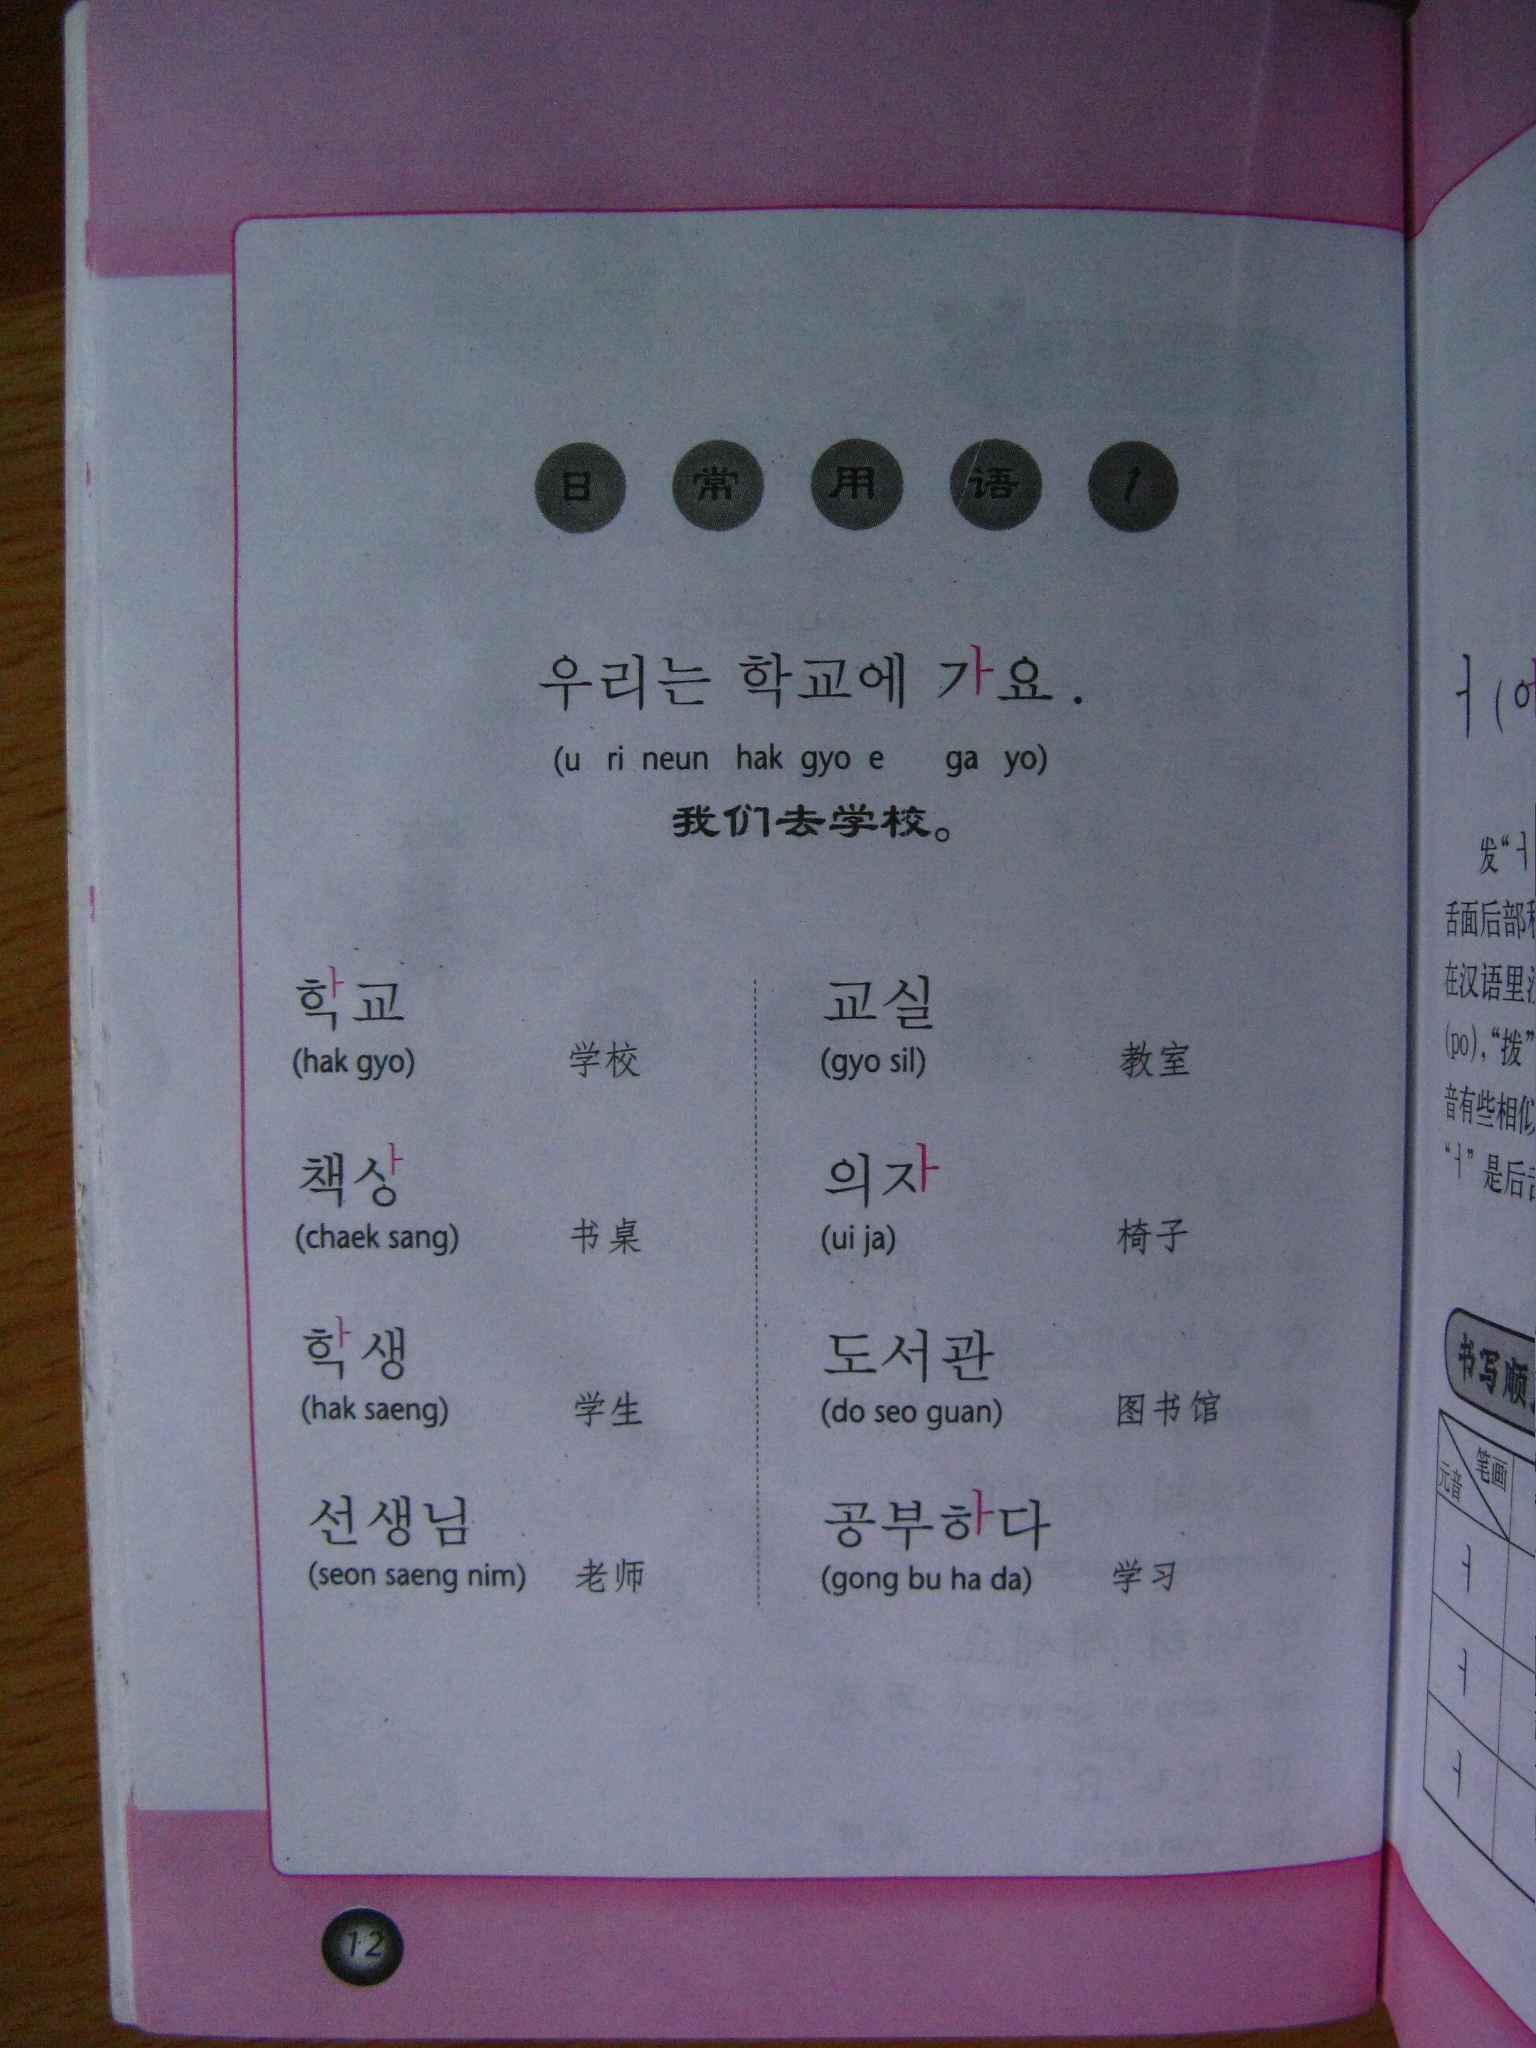 日常用语1
우리는 학교에 가요.
(u ri neun hak gyo e ga yo)
我们去学校。
학교
(hak gyo) 学校
책상
(chaek sang) 书桌
학생
(hak saeng) 学生
선생님
(seon saeng nim) 老师
교실
(gyo sil) 教室
의자
(ui ja) 椅子
도서관
(do seo guan) 图书馆
공부하다
(gong bu ha da) 学习
12
ㅓ(어
发“ㅓ
舌面后部和
在汉语里没
(po),“拨”
音有些相似
“ㅓ”是后舌
书写顺
笔画
元音
ㅓ
ㅓ
ㅓ